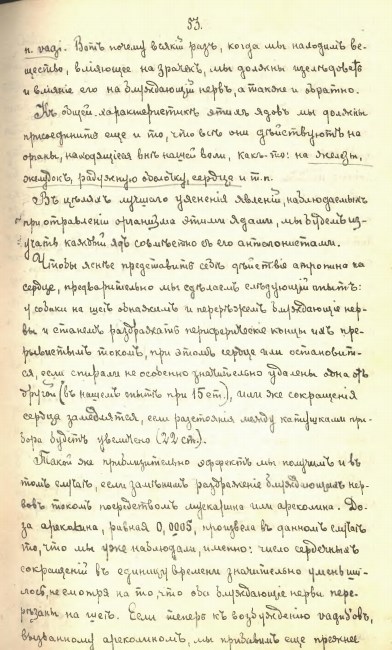 53.
n. vagi. Вотъ почему всякій разъ, когда мы находимъ ве-
щество, вліяющее на зрачекъ, мы должны изслѣдовать
и вліяніе его на блуждающій нервъ, а также и обратно.
Къ общей характеристикѣ этихъ ядовъ мы должны
присоединить еще и то, что всѣ они дѣйствуютъ на
органы, находящіеся внѣ нашей воли, какъ-то: на железы,
желудокъ, радужную оболочку, сердце и т.п.
Въ цѣляхъ лучшаго уясненія явленій, наблюдаемыхъ
при отравленіи организма этими ядами, мы будемъ из-
учать каждый ядъ совмѣстно съ его антагонистами.
Чтобы яснѣе представить себѣ дѣйствіе атропина на
сердце, предварительно мы сдѣлаемъ слѣдующій опытъ:
у собаки на шеѣ обнажимъ и перерѣжемъ блуждающіе нер-
вы и станемъ раздражать периферическіе концы ихъ пре-
рывистымъ токомъ, при этомъ сердце или остановит-
ся, если спирали не особенно значительно удалены одна отъ
другой (въ нашемъ опытѣ при 15 ст.), или же сокращенія
сердца замедлятся, если разстоянія между катушками при-
бора будетъ увеличено (22 ст.).
Такой же приблизительно эффектъ мы получимъ и въ
томъ случаѣ, если замѣнимъ раздраженіе блуждающихъ нер-
вовъ токомъ посредствомъ мускарина или ареколина. До-
за ареколина, равная 0,0005, произвела въ данномъ случаѣ
то, что мы уже наблюдали, именно: число сердечныхъ
сокращеній въ единицу времени значительно уменьши-
лось, несмотря на то, что оба блуждающіе нервы пере-
рѣзаны на шеѣ. Если теперь къ возбужденію vagus'овъ,
вызванному ареколиномъ, мы прибавимъ еще прежнее